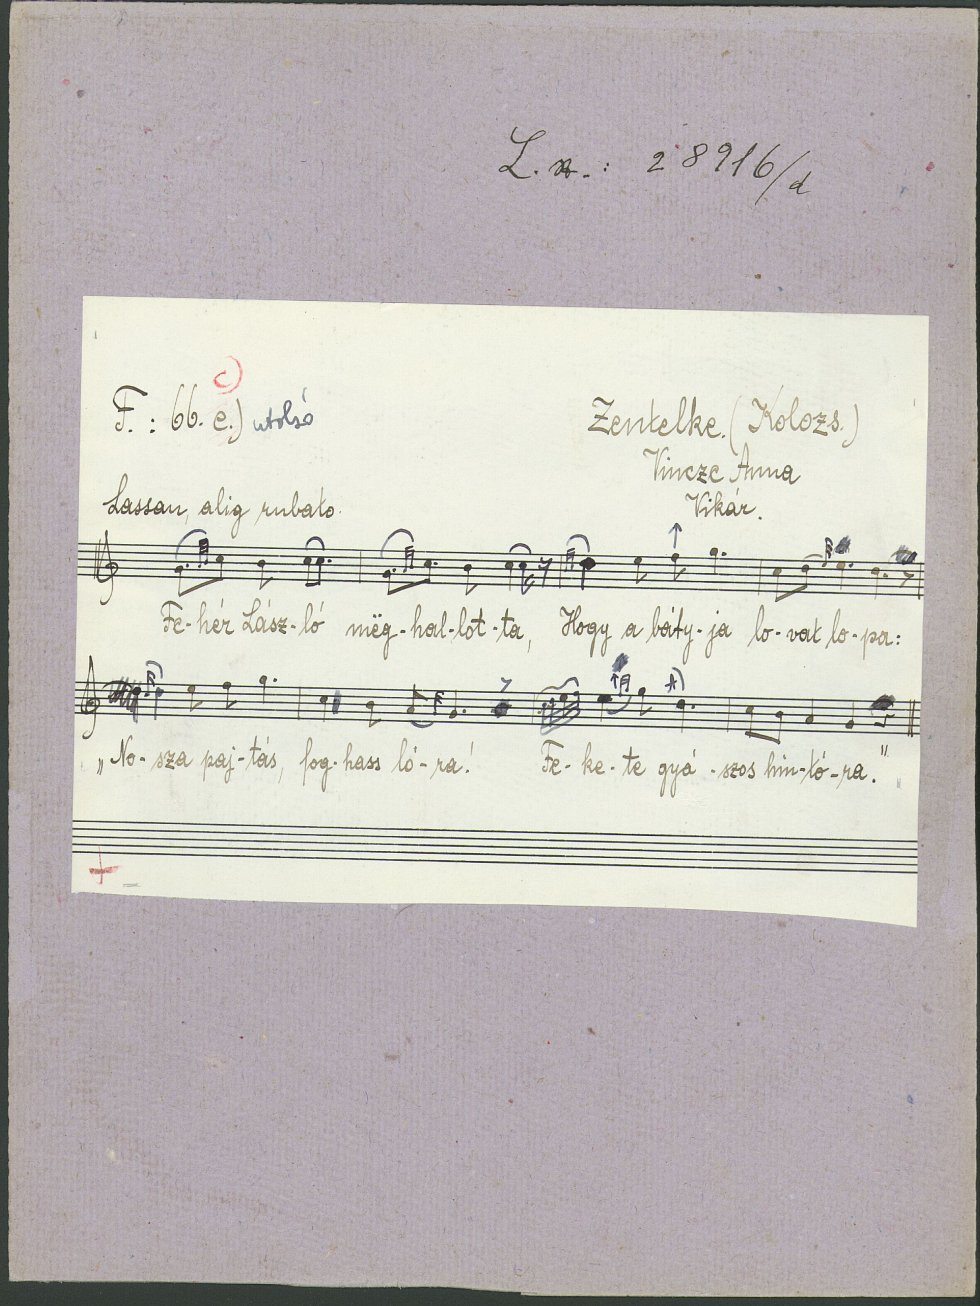 L. sz.: 28916/d
c)
F.: 66. e.) utolsó
Zentelke. (Kolozs.)
Vincze Anna
Vikár.
Lassan, alig rubato.
Fe-hér Lász-ló mëg-hal-lot-ta, Hogy a báty-ja lo-vat lo-pa:
„No-sza paj-tás, fog-hass ló-ra! Fe-ke-te gyá-szos hin-tó-ra."